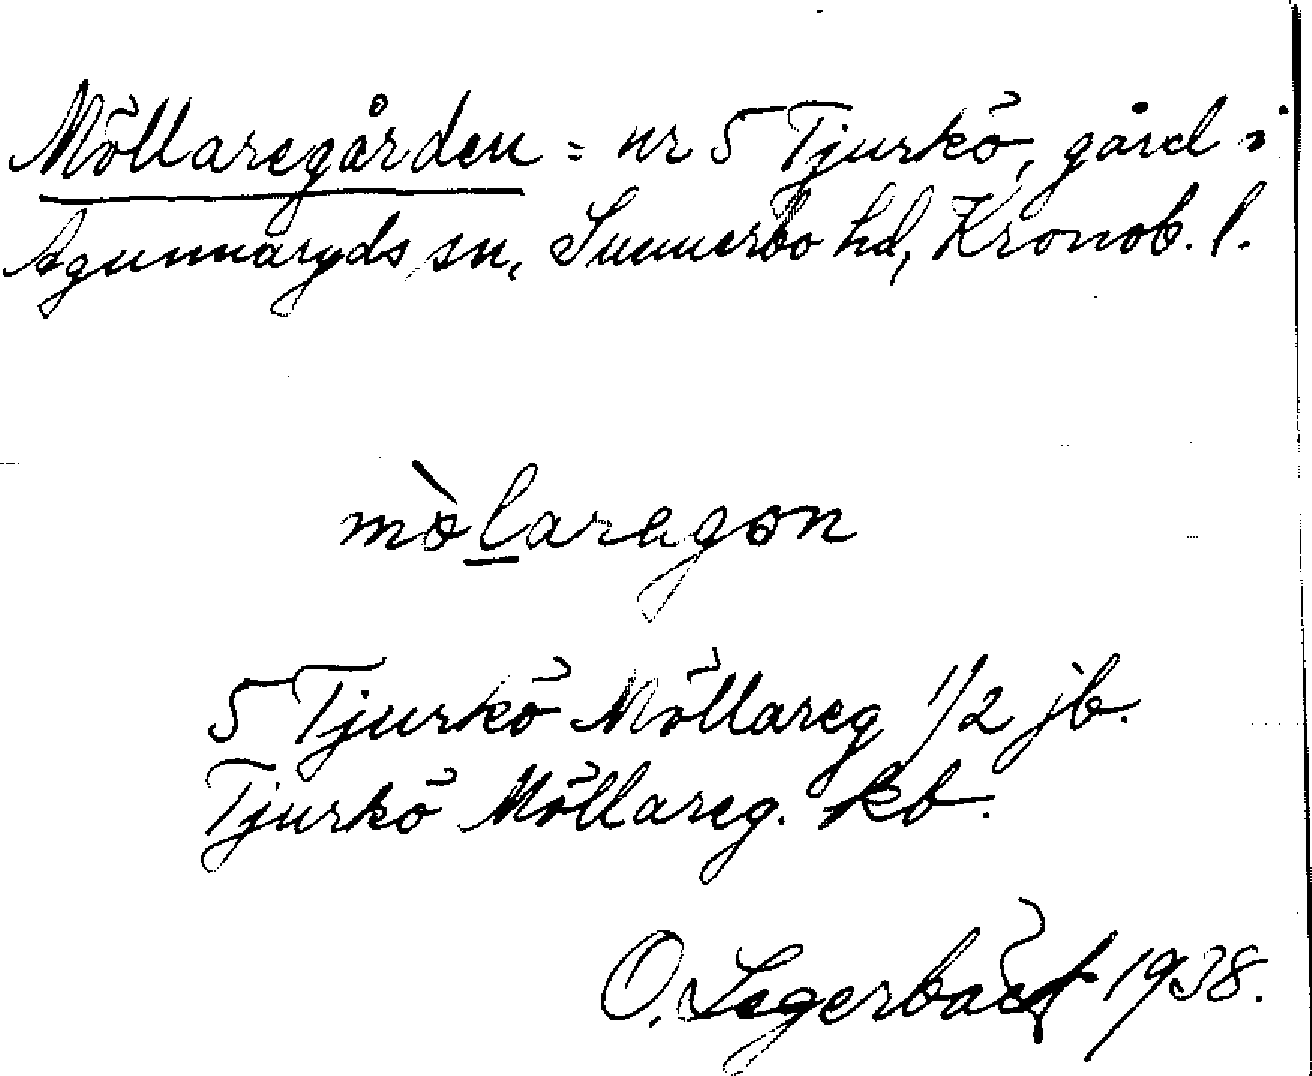 Möllaregården = nr 5 Tjurkö, gård i
Agunnaryds sn, Sunnerbo hd, Kronob. l.
mòlaragon
5 Tjurkö Möllareg 1/2 jb.
Tjurkö Möllareg. kb.
O. 1938.